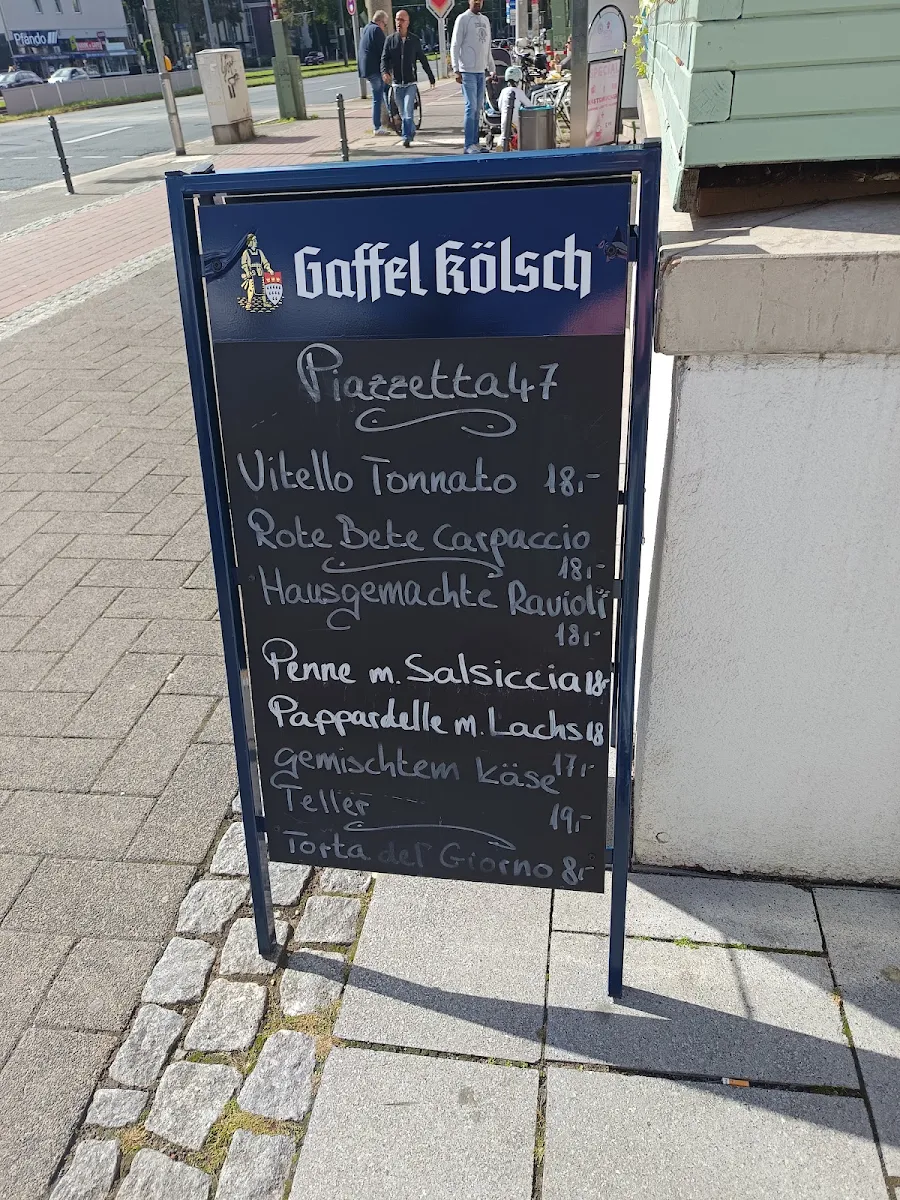 Pfando
Gaffel Kölsch
Piazzetta 47
Vitello Tonnato 18,-
Rote Bete Carpaccio
18,-
Hausgemachte Ravioli
18,-
Penne m. Salsiccia 18,-
Pappardelle m. Lachs 18
17,-
gemischtem Käse
Teller 19,-
Torta del Giorno 8,-